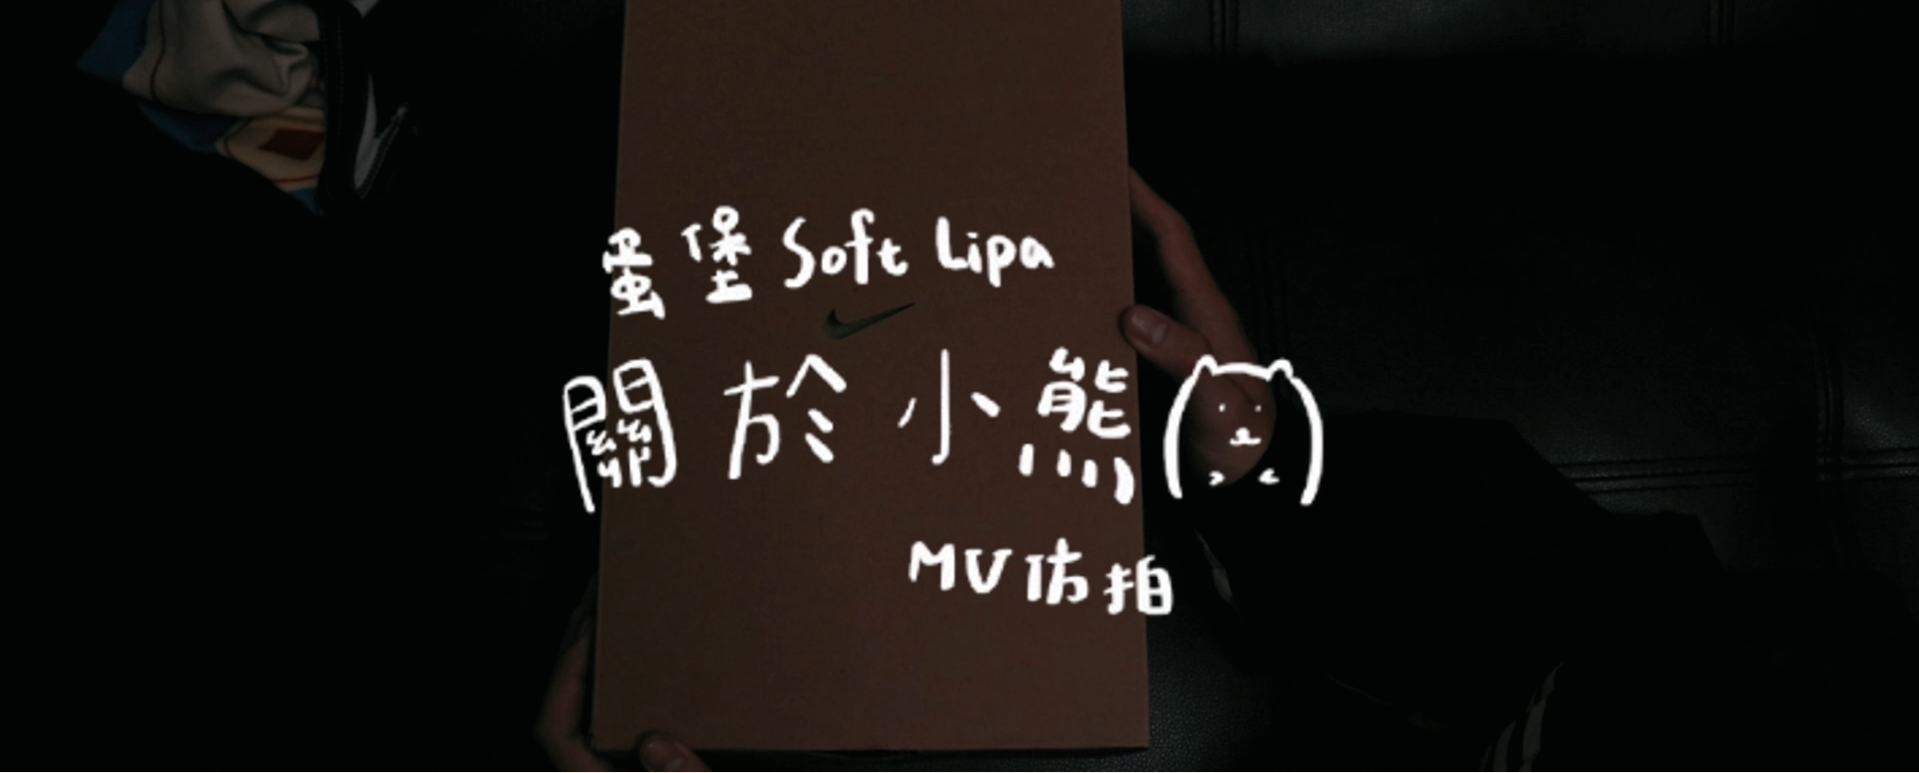 蛋堡 Soft Lipa
關於小熊
MV仿拍